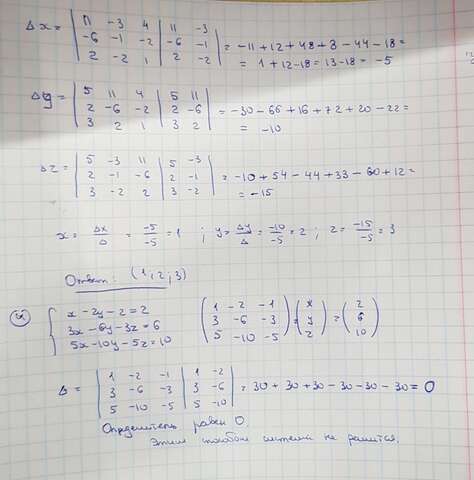 Δx = | 11 -3 4 | 11 -3
-6 -1 -2 | -6 -1
2 -2 1 | 2 -2 | = -11 + 12 + 48 + 3 - 44 - 18 =
= 1 + 12 - 18 = 13 - 18 = -5
Δy = | 5 11 4 | 5 11
2 -6 -2 | 2 -6
3 2 1 | 3 2 | = -30 - 66 + 16 + 72 + 20 - 22 =
= -10
Δz = | 5 -3 11 | 5 -3
2 -1 -6 | 2 -1
3 -2 2 | 3 -2 | = -10 + 54 - 44 + 33 - 60 + 12 =
= -15
x = Δx/Δ = -5/-5 = 1 ; y = Δy/Δ = -10/-5 = 2 ; z = -15/-5 = 3
Ответ: (1, 2, 3)
x - 2y - z = 2
3x - 6y - 3z = 6
5x - 10y - 5z = 10
( 1 -2 -1
3 -6 -3
5 -10 -5 ) = ( x
y
z ) = ( 2
6
10 )
Δ = | 1 -2 -1 | 1 -2
3 -6 -3 | 3 -6
5 -10 -5 | 5 -10 | = 30 + 30 + 30 - 30 - 30 - 30 = 0
Определитель равен 0.
Этим способом система не решится.